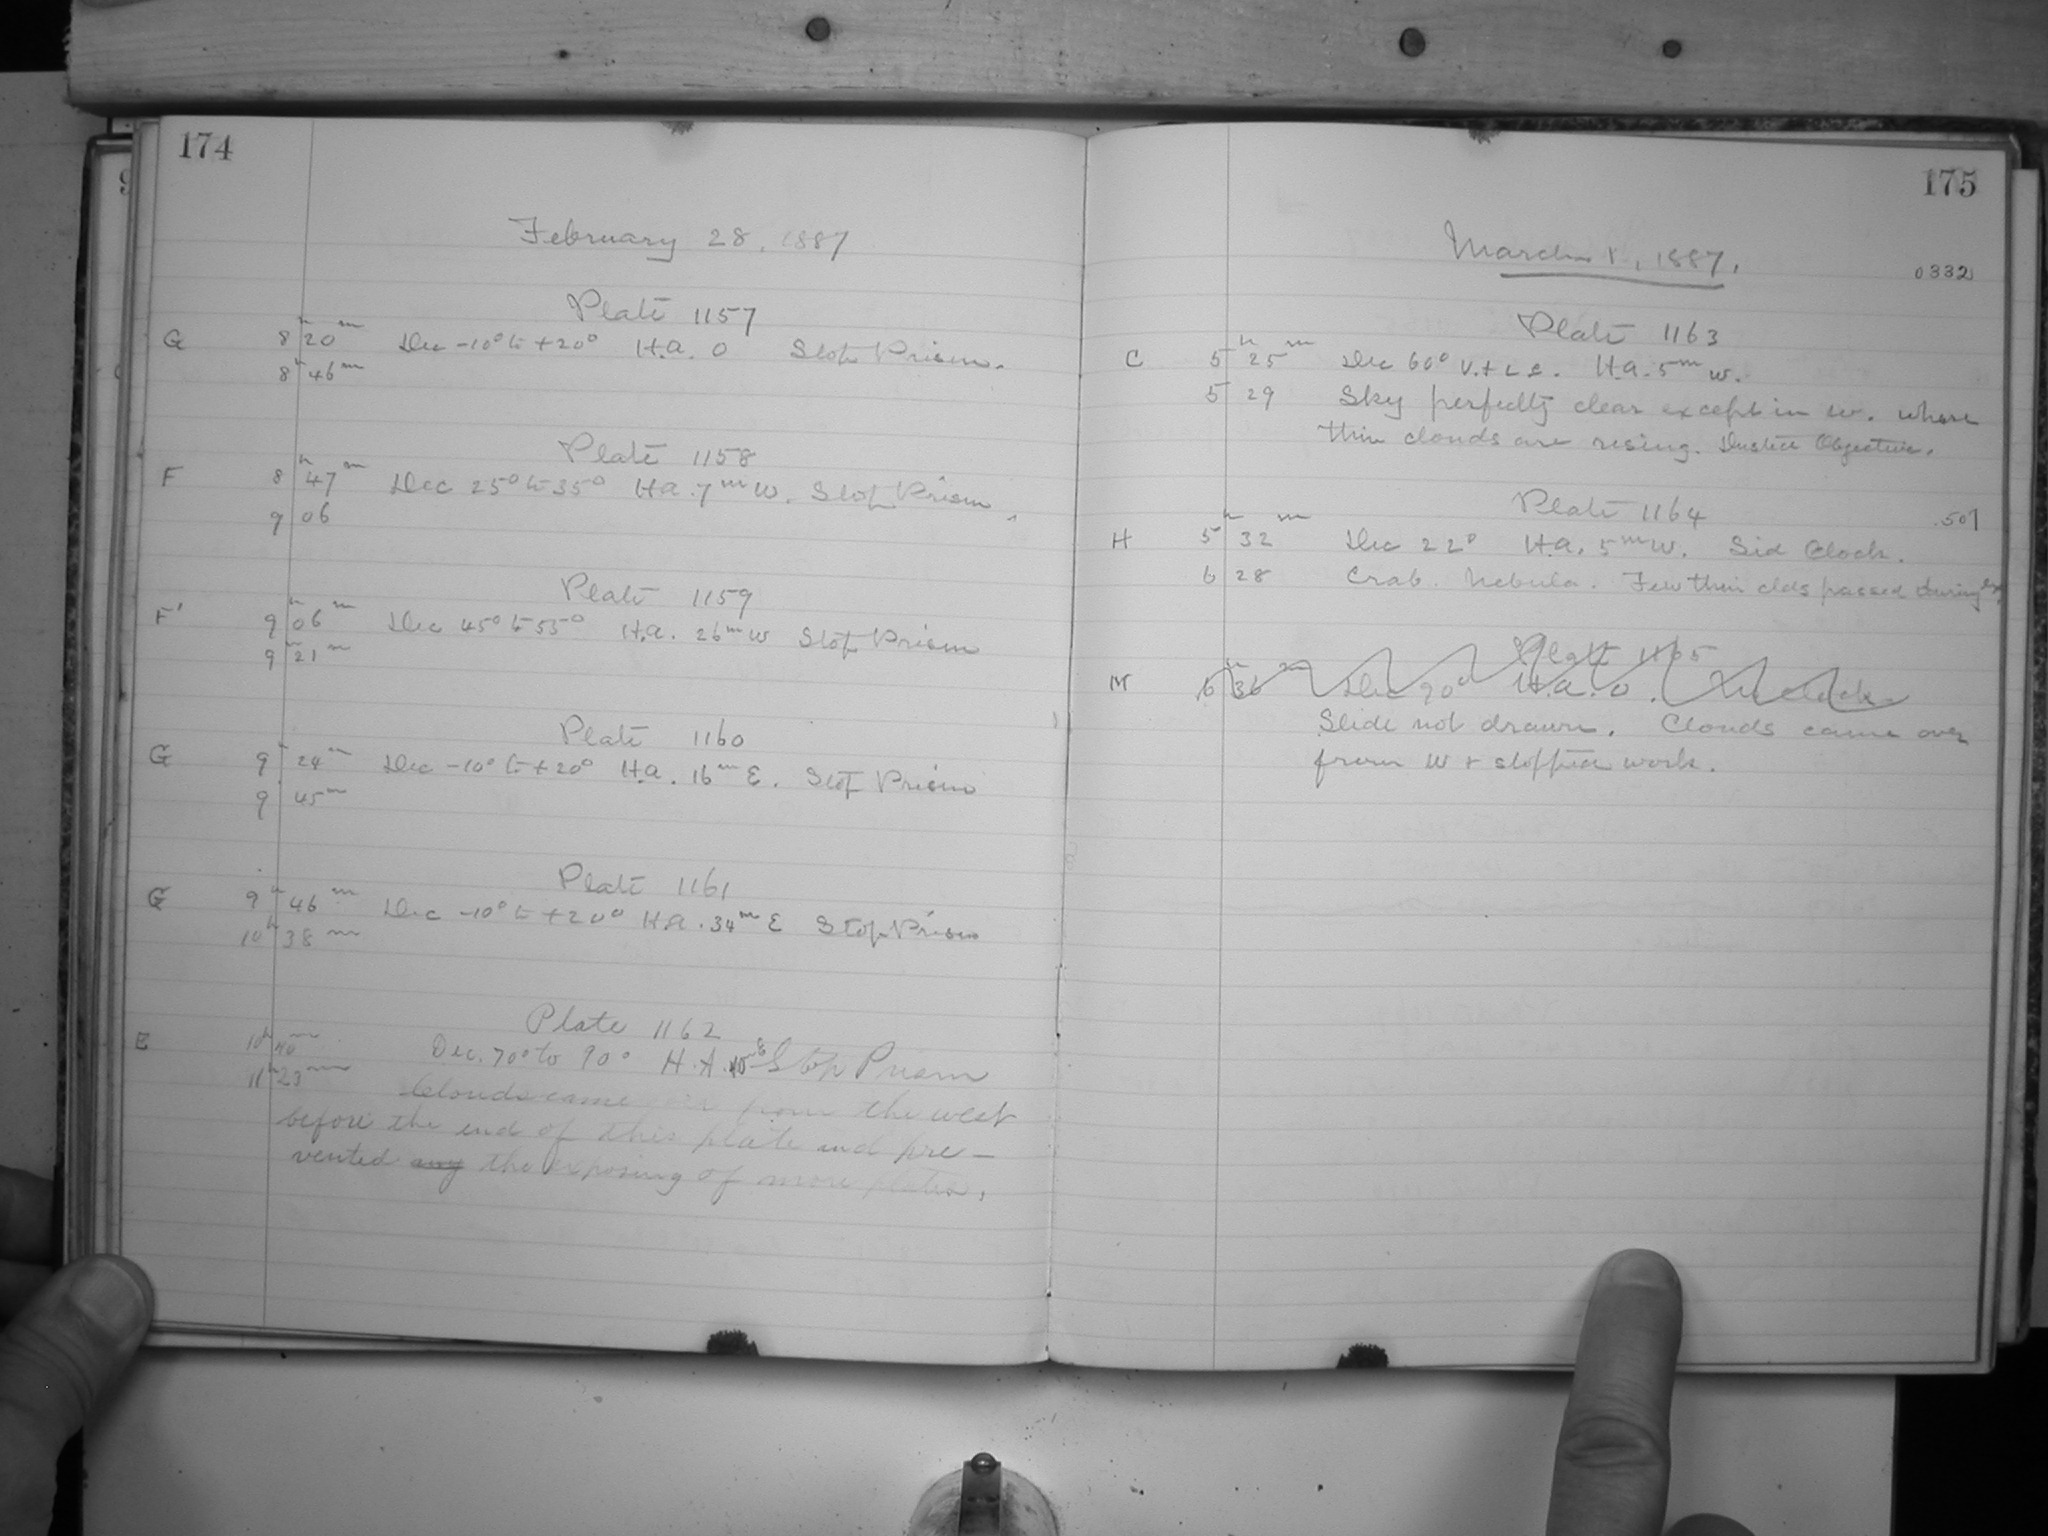 174
February 28, 1887
Plate 1157
G 8 20 m Dec -10° to +20° H.A. 0 Stop Prism.
8 46 m
Plate 1158
F 8 h 47 m Dec 25° to 35° H.A. 7 m W. Stop Prism.
9 06
Plate 1159
F' 9 h 06 m Dec 45° to 55° H.A. 26 m W Stop Prism
9 21 m
Plate 1160
G 9 h 24 m Dec -10° to +20° H.A. 16 m E. Stop Prism
9 45 m
Plate 1161
G 9 h 46 m Dec -10° to +20° H.A. 34 m E Stop Prism
10 h 38 m
Plate 1162
E 10 h 40 m Dec. 70° to 90° H.A. Stop Prism
11 h 23 m
Clouds came from the west
before the end of this plate and pre-
vented any the exposing of more plates.
175
March 1, 1887.
0332
Plate 1163
C 5 h 25 m Dec 60° V. + L S. H.A. 5 m W.
5 29 Sky perfectly clear except in W. where
thin clouds are rising. Dusted Objective.
Plate 1164
507
H 5 h 32 m Dec 22° H.A. 5 m W. Sid Clock.
6 28 Crab Nebula. Few thin clds passed during
Plate 1165
M 6 h 36 m Dec 90° H.A. 0. clock
Slide not drawn. Clouds came over
from W + stopped work.